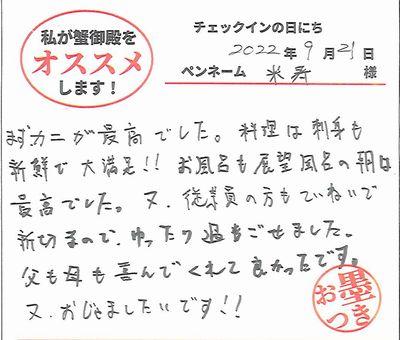 私が蟹御殿を
オススメ
します！
チェックインの日にち
2022年9月21日
ペンネーム 米寿 様
まずカニが最高でした。料理は刺身も
新鮮で大満足!! お風呂も展望風呂の朝は
最高でした。又、従業員の方もていねいで
親切なので、ゆったり過ごせました。
父も母も喜んでくれて良かったです。
又、おじゃましたいです!!
お墨つき